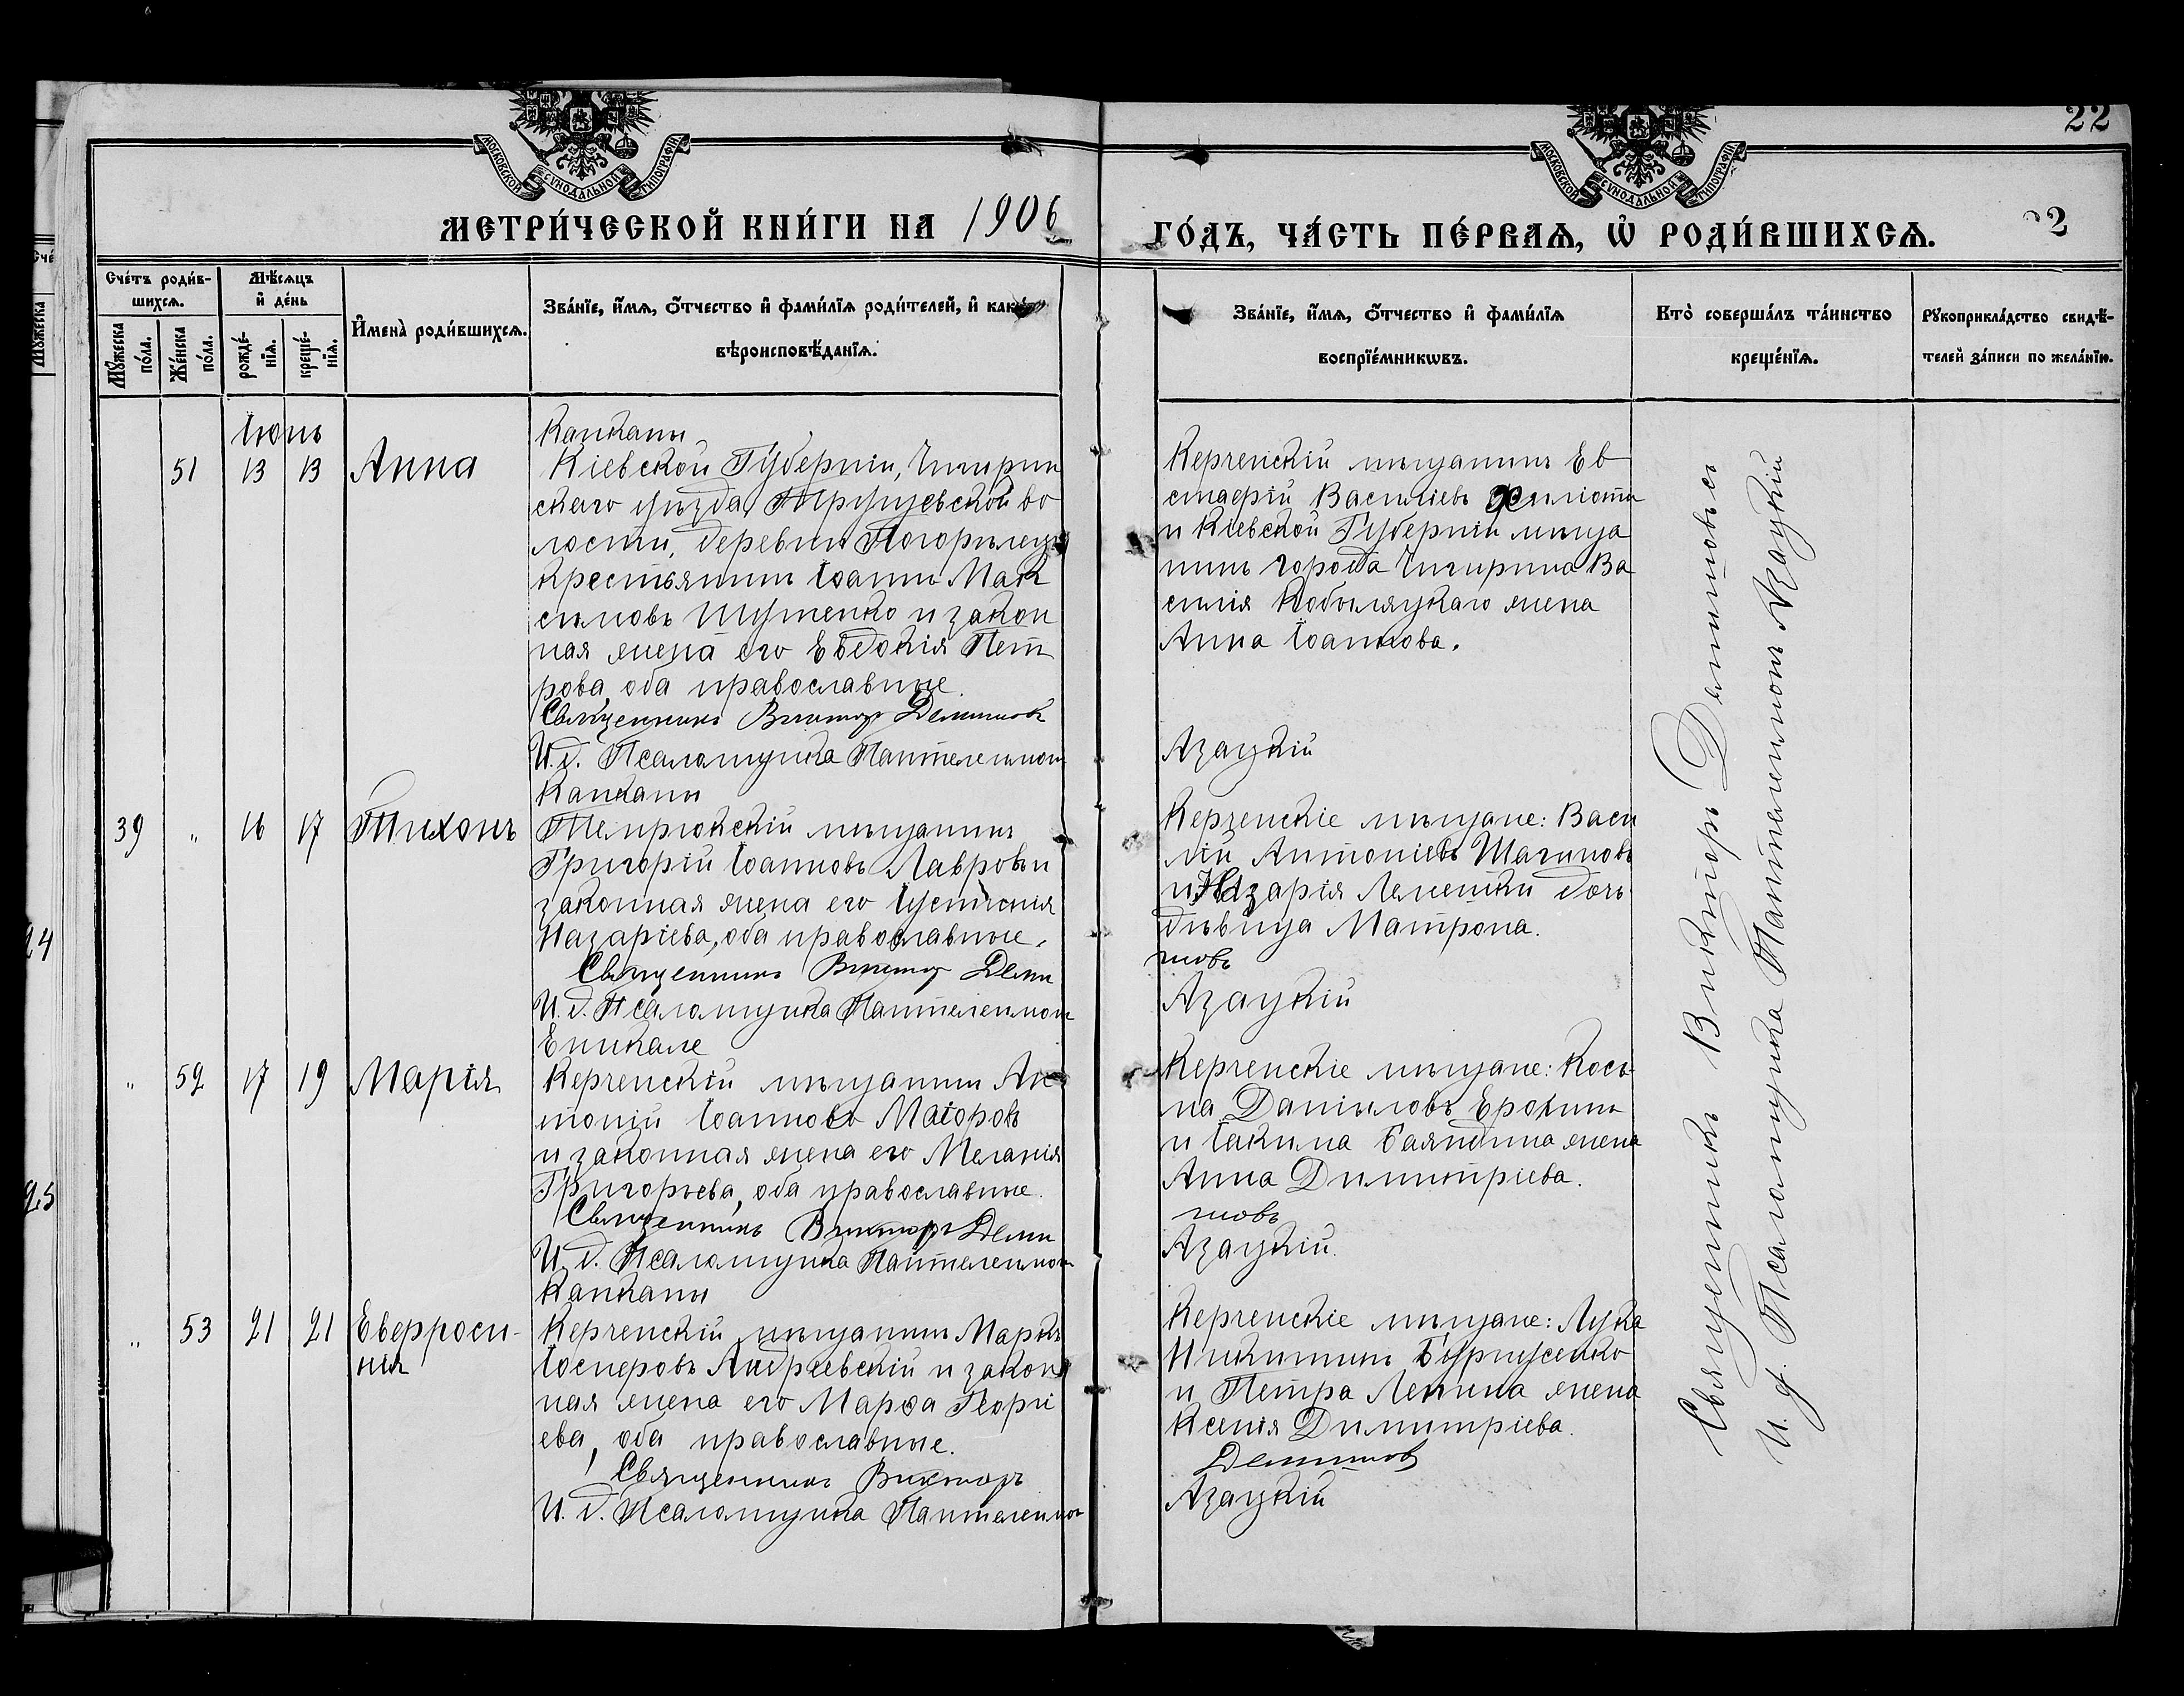 22
МОСКОВСКОЙ СУНОДАЛЬНОЙ ТИПОГРАФІИ
МОСКОВСКОЙ СУНОДАЛЬНОЙ ТИПОГРАФІИ
МЕТРИ́ЧЕСКОЙ КНИ́ГИ НА 1906 ГО́ДЪ, ЧА́СТЬ ПЕ́РВАѦ, Ѡ҆ РОДИ́ВШИХСѦ. 22
Сче́тъ роди́в-
шихсѧ.
Мꙋжеска по́ла.
Же́нска по́ла.
Мѣ́сѧцъ
и҆ де́нь
рожде́-
нїѧ.
креще́-
нїѧ.
И҆мена̀ роди́вшихсѧ.
Зва́нїе, и҆́мѧ, ѻ҆́тчество и҆ фами́лїѧ роди́телей, и҆ како́гѡ
вѣроисповѣ́данїѧ.
Зва́нїе, и҆́мѧ, ѻ҆́тчество и҆ фами́лїѧ
воспрїе́мникѡвъ.
Кто̀ соверша́лъ та́инство
креще́нїѧ.
Рꙋкоприкла́дство свидѣ́-
телей за́писи по жела́нїю.
Іюнь
51 13 13 Анна
Капканы
Кіевской Губерніи, Чигирин
скаго уѣзда, Трушевской во
лости, деревни Погорѣлецъ
крестьянинъ Іоаннъ Мак
симовъ Шутенко и закон
ная жена его Евдокія Пет
рова, оба православные.
Священникъ Викторъ Демитовъ
И. д. Псаломщика Пантелеимонъ
Керченскій мѣщанинъ Ев
стафій Василіевъ
и Кіевской Губерніи мѣща
нинъ города Чигирина Ва
силія Кобыляцкаго жена
Анна Іоаннова.
Азацкій
39 " 16 17 Тихонъ
Капканы
Темрюкскій мѣщанинъ
Григорій Іоанновъ Лавровъ и
законная жена его Іустинія
Назаріева, оба православные.
Священникъ Викторъ Деми
И. д. Псаломщика Пантелеимонъ
Керченскіе мѣщане: Васи
лій Антоніевъ Шагиновъ
и Назарія Лемешки дочь
дѣвица Матрона.
товъ
Азацкій
" 52 17 19 Марія
Еникале
Керченскій мѣщанинъ Ан
тоній Іоанновъ Маіоровъ
и законная жена его Меланія
Григорьева, оба православные.
Священникъ Викторъ Деми
И. д. Псаломщика Пантелеимонъ
Керченскіе мѣщане: Кось
ма Даніиловъ Ерохинъ
и Іакима Баяндина жена
Анна Димитріева.
товъ
Азацкій.
" 53 21 21 Евфроси-
нія
Капканы
Керченскій мѣщанинъ Маркъ
Іосифовъ Андреевскій и закон
ная жена его Марѳа Георгі
ева, оба православные.
Священникъ Викторъ
И. д. Псаломщика Пантелеимонъ
Керченскіе мѣщане: Лука
Никитинъ
и Петра Ленина жена
Ксенія Димитріева.
Демитовъ
Азацкій
Священникъ Викторъ Демитовъ
И. д. Псаломщика Пантелеимонъ Азацкій
24
25